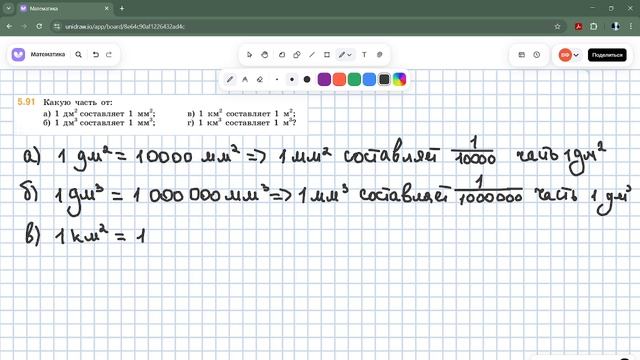 Математика
unidraw.io/app/board/8e64c90af1226432ad4c
Математика
Поделиться
5.91 Какую часть от:
а) 1 дм² составляет 1 мм²; в) 1 км² составляет 1 м²;
б) 1 дм³ составляет 1 мм³; г) 1 км³ составляет 1 м³?
а) 1 дм² = 10000 мм² => 1 мм² составляет 1/10000 часть 1 дм²
б) 1 дм³ = 1 000 000 мм³ => 1 мм³ составляет 1/1000000 часть 1 дм³
в) 1 км² = 1